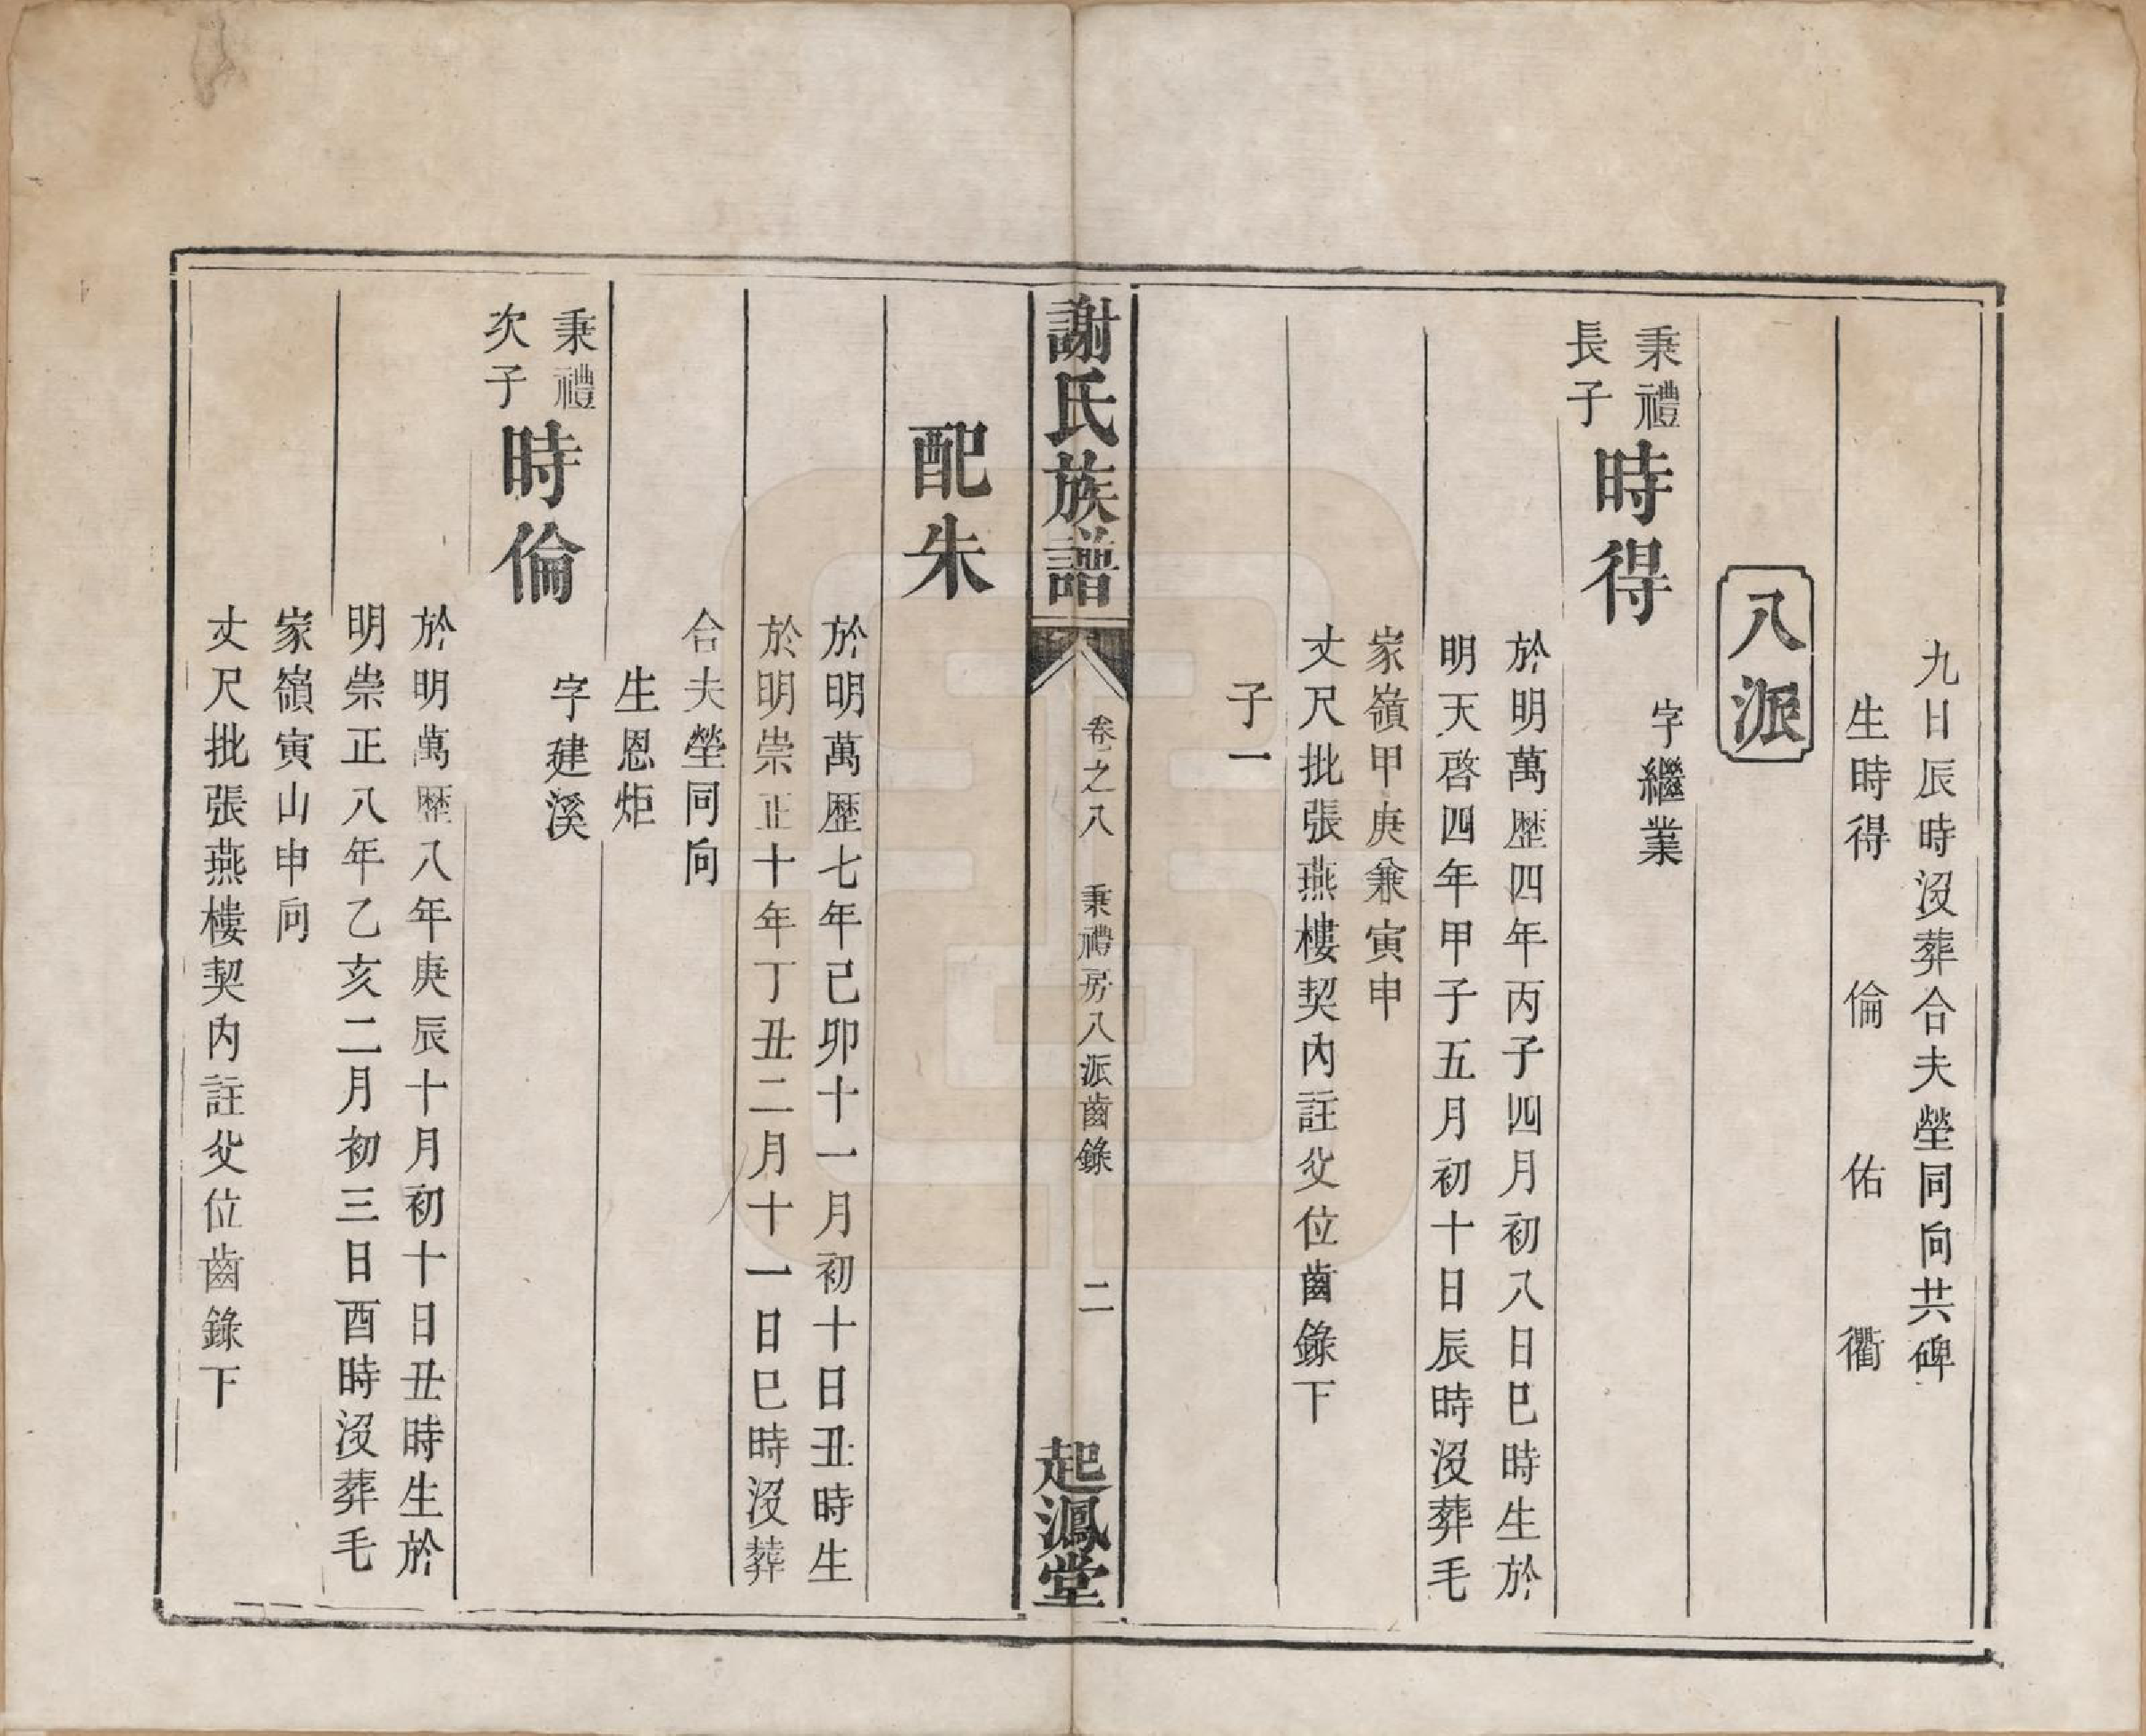 九日辰時沒葬合夫塋同向共碑
生時得 倫 佑 衢
八派
秉禮
長子
時得
字繼業
於明萬歷四年丙子四月初八日巳時生於
明天啓四年甲子五月初十日辰時沒葬毛
家嶺甲庚兼寅申
丈尺批張燕樓契內註父位齒錄下
子一
謝氏族譜
卷之八
秉禮房八派齒錄
二
起鳳堂
配朱
於明萬歷七年己卯十一月初十日丑時生
於明崇正十年丁丑二月十一日巳時沒葬
合夫塋同向
生恩炬
秉禮
次子
時倫
字建溪
於明萬歷八年庚辰十月初十日丑時生於
明崇正八年乙亥二月初三日酉時沒葬毛
家嶺寅山申向
丈尺批張燕樓契內註父位齒錄下